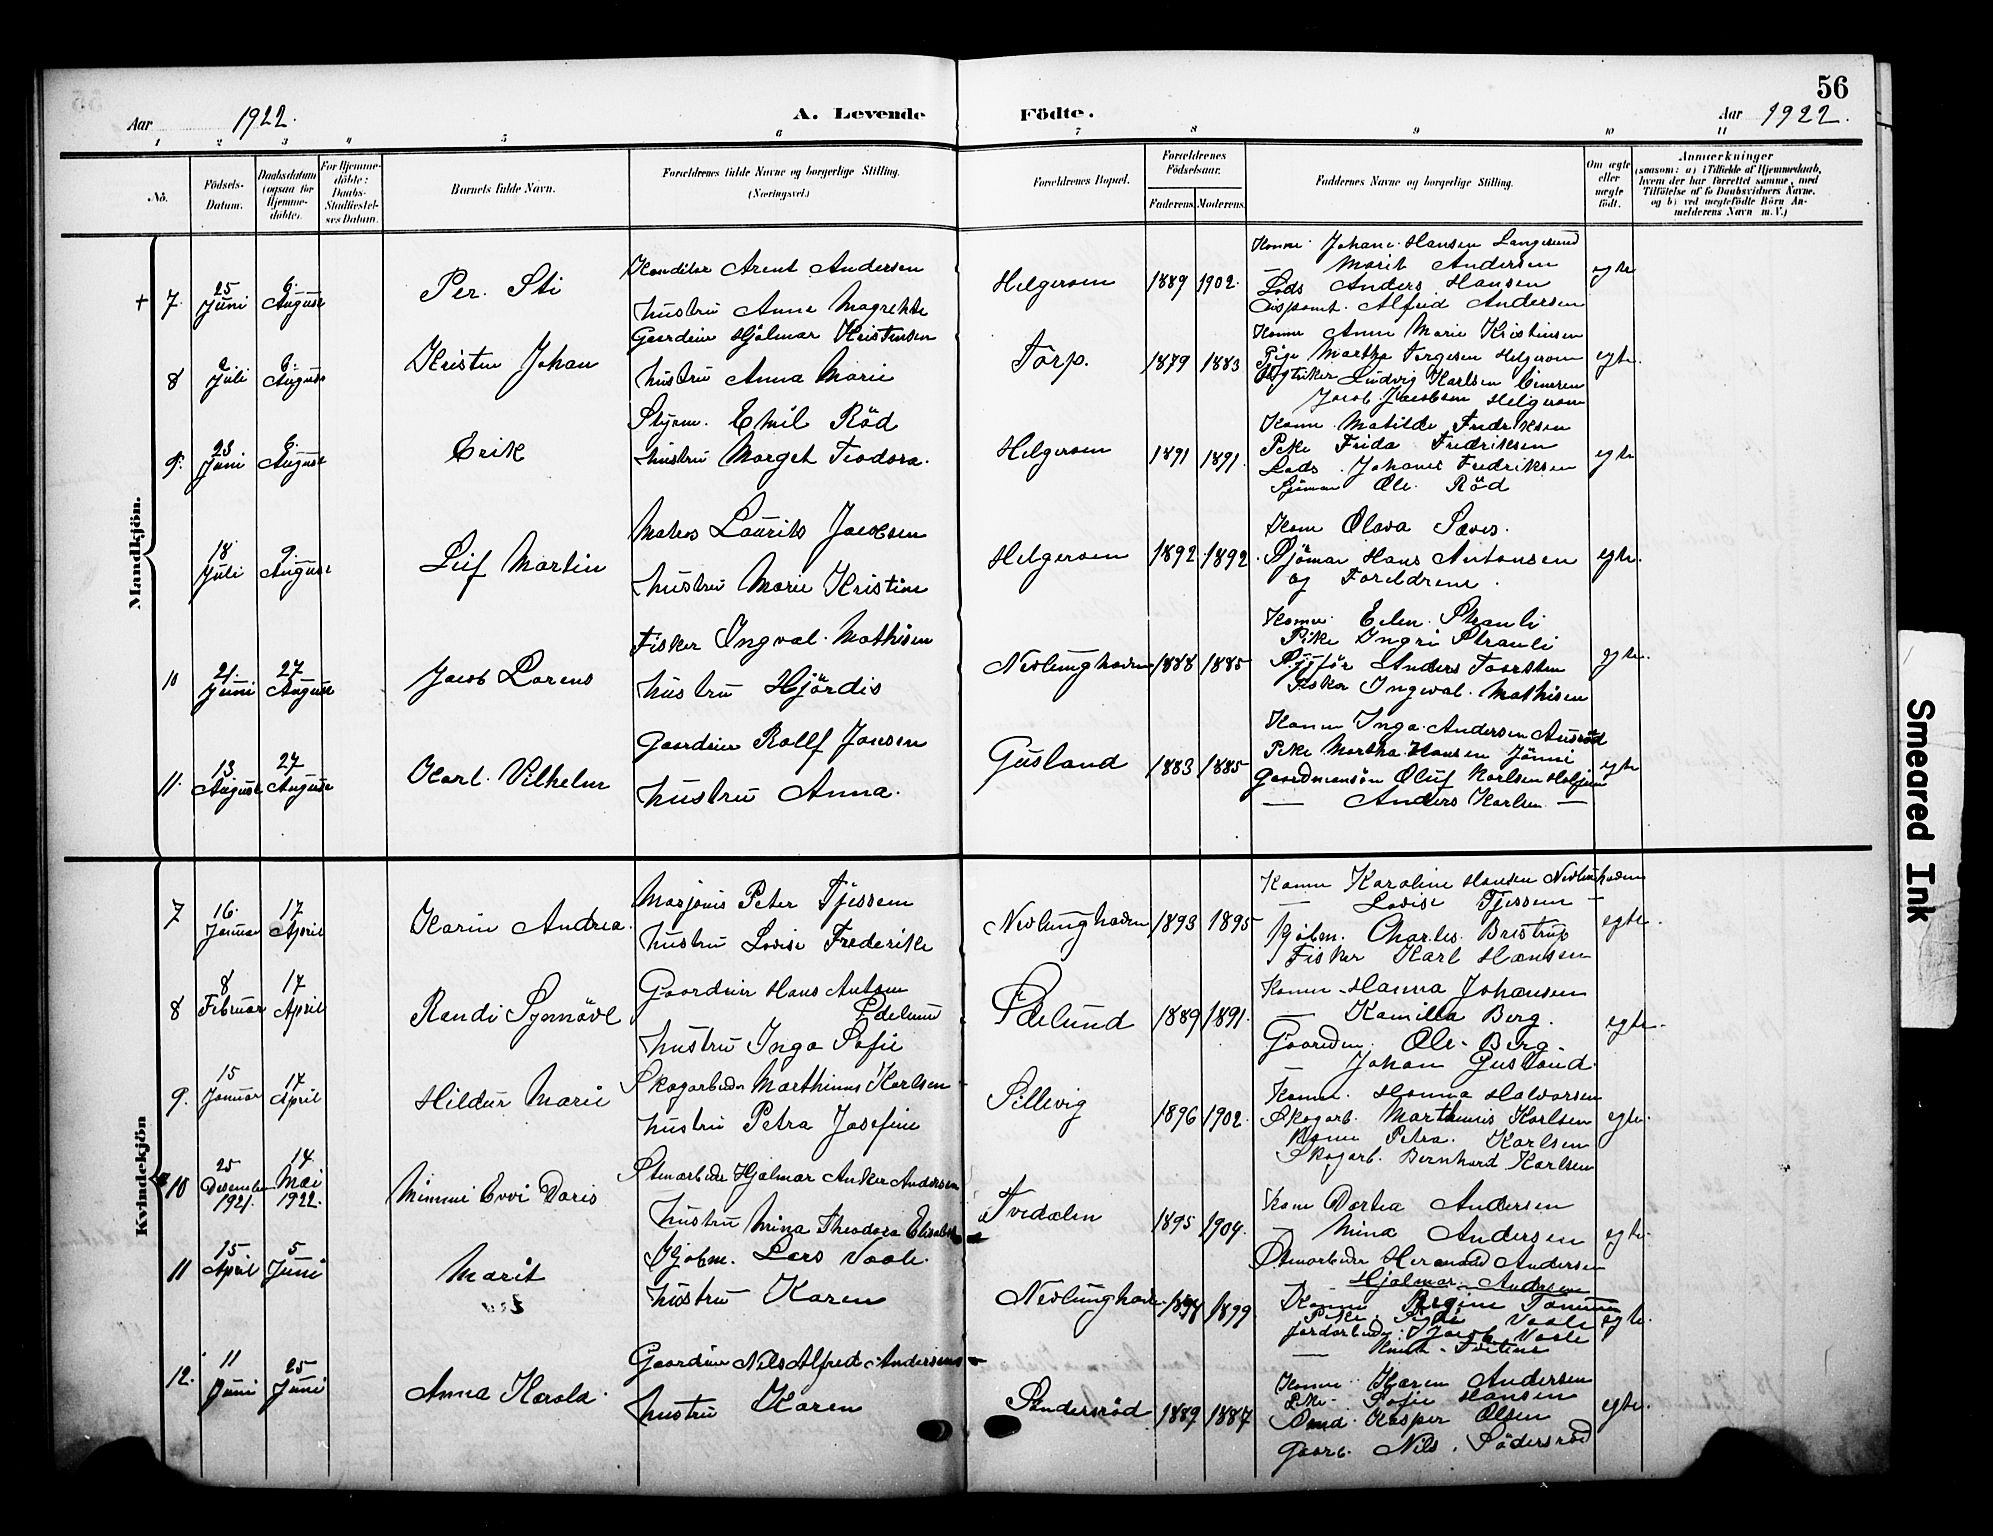 56
Aar 1922.
A. Levende Födte.
Aar 1922.
1 2 3 4 5 6 7 8 9 10 11
No.
Födsels-Datum.
Daabsdatum (ogsaa for Hjemme-döbte).
For Hjemme-döbte: Daabs-Stadfæstel-ses Datum.
Barnets fulde Navn.
Forældrenes fulde Navne og borgerlige Stilling. (Næringsvei.)
Forældrenes Bopæl.
Forældrenes Födselsaar.
Faderens. Moderens.
Faddernes Navne og borgerlige Stilling.
Om ægte eller uægte födt.
Anmærkninger
(saasom: a) i Tilfælde af Hjemmedaab, hvem der har forrettet samme, med Tilföielse af to Daabsvidners Navne, og b) ved uægtefödte Börn Anmelderens Navn m. V.)
Mandkjön.
+ 7. 25 Juni 6. August Per. Sti
Konditor Arent Andersen
hustru Anne Magrethe
Helgeroen 1889 1902.
Kone Johane Hansen Langesund
— Marit Andersen
Lods Anders Hansen
Alfred Andersen
egte
8 2 Juli 6. August Kristen Johan
Gaardeier Hjalmar Kristensen
hustru Anna Marie
Torp. 1879 1883
Kone Anna Marie Kristensen
Pige Martha Tergesen Helgeroen
Ludvig Karlsen
Jacob Jacobsen Helgeroen
egte.
9. 23 Juni 6. August Erik
Styrm. Emil Röd
hustru Marget Teodora.
Helgeroen 1891 1891.
Kone Matilde Fredriksen
Pike Frida Fredriksen
Lods Johanes Fredriksen
Sjöman Ole. Röd
egte
18 Juli 9. August Leif Martin
Matros Laurits Jacobsen
hustru Marie Kristine
Helgeroen 1892 1892.
Kone Olava
Sjöman Hans Antonsen
og Foreldrene.
egte.
10 21. Juni 27 August Jacob Lorens
Fisker Ingval. Mathisen
hustru Hjördis
Nevlunghavn 1888 1885
Kone. Elen. Strauli
Pike Ingri Strauli
Anders Taarsten
Fisker Ingval. Mathisen
egte.
11. 13 August 27 August Karl. Vilhelm
Gaardeier Rolff Jansen
hustru Anna.
Gusland 1883 1885
Kone Inga. Andersen Ausröd
Pike Martha Hansen
Gaardmansön Oluf Karlsen
— Anders Karlsen —
egte
Kvindekjön
7 16. Januar 17 April Karin Andrea.
Peter Tjessem
hustru Lovise Frederike
Nevlunghavn 1893 1895
Kone Karoline Hansen Nevlunghavn
— Lovise Tjessem —
Charles. Bristrup
Fisker Karl Hansen
egte.
8 8 Februar 17 April Randi Synnöve
Gaardeier Hans Antsen
Ødelund
hustru Inga Sofie
Ødelund 1889 1891.
Kone Hanna Johansen
— Kamilla Berg.
Gaardm. Ole. Berg.
— Johan Gusland.
egte.
9. 15 Januar 17 April Hildur Marie
Skogarbeider Marthinus Karlsen
hustru Petra Josefine
Sillevig 1896 1902.
Kone. Hanna Halvorsen
Skogarb. Marthinus Karlsen
Kone Petra. Karlsen
Skogarb. Bernhard Karlsen
egte.
10 25 Desember 1921. 14. Mai 1922. Mimmi Evvi Doris
Stenarbeider Hjalmar Anker Andersen
hustru Mina Theodora Elisabeth
Tvedalen 1895 1904.
Kone Dortea Andersen
— Mina Andersen
Stenarbeider Hermand Andersen
Hjalmar. Andersen
egte.
11 15 April 5 Juni Marit
Lars Vaale.
hustru Karen
Nevlunghavn 1894 1899
Kone Regine
Pike. Vaale
Jacob Vaale
egte.
12. 11 Juni 25 Juni Anna Harolda.
Gaardeier Nils Alfred Andersen
hustru Karen
Sondersröd 1889 1887
Kone Karen Andersen
Pike. Sofie Hansen
Kasper Olsen
Gaarb. Nils. Södersröd
egte.
Smeared Ink